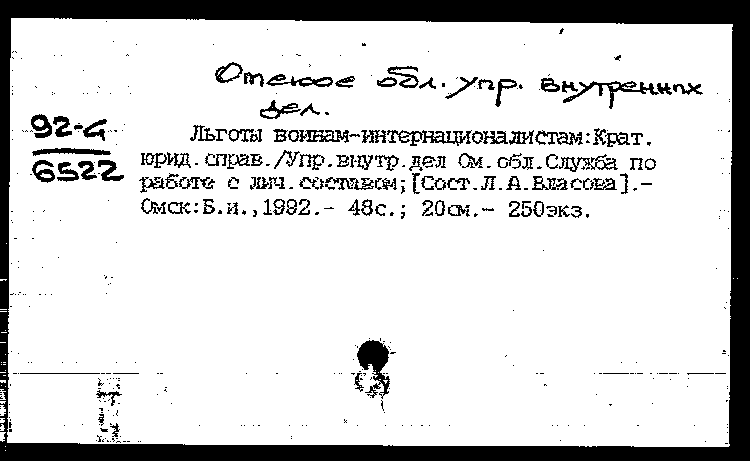 Омское обл. упр. внутренних
дел.
92-4
6522
Льготы воинам-интернационалистам:Крат.
юрид.справ./Упр.внутр.дел Ом.обл.Служба по
работе с лич.составом;[Сост.Л.А.Власова].-
Омск:Б.и.,1992.- 48с.; 20см.- 250экз.